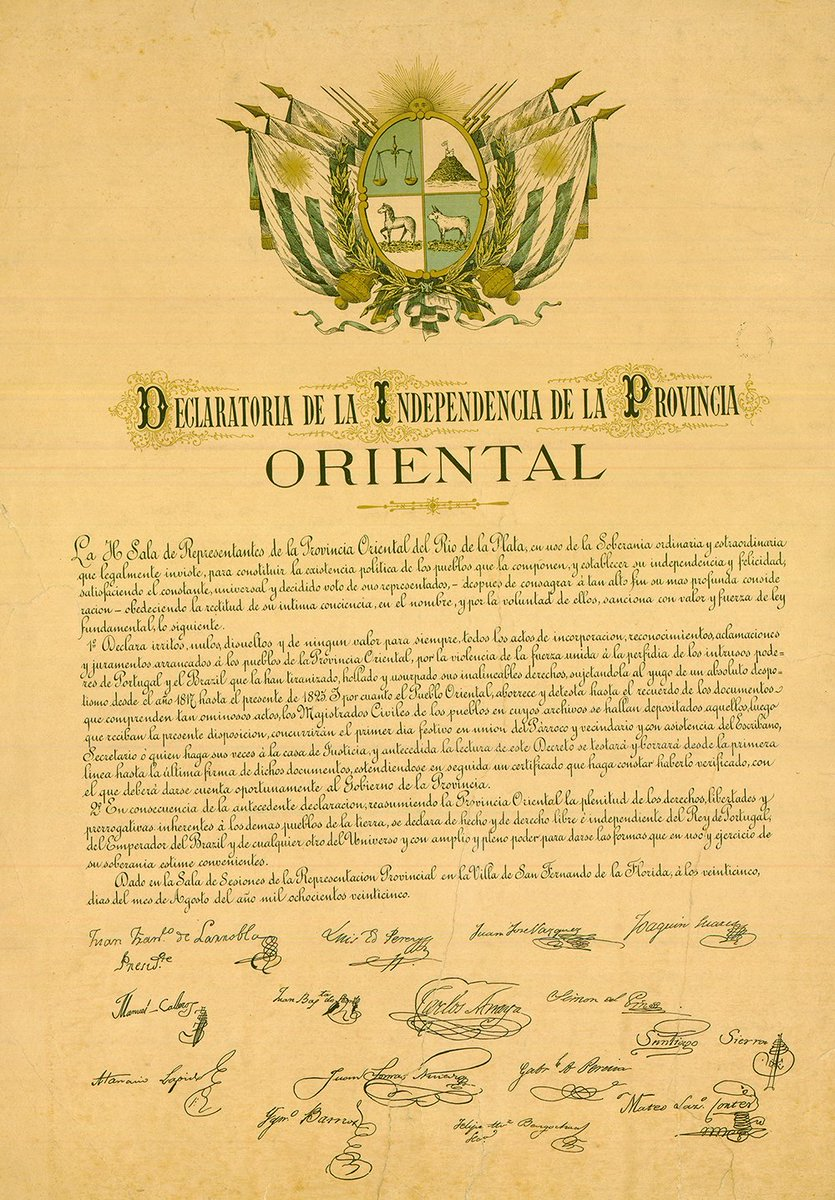 DECLARATORIA DE LA INDEPENDENCIA DE LA PROVINCIA
ORIENTAL
La H Sala de Representantes de la Provincia Oriental del Rio de la Plata, en uso de la Soberania ordinaria y estraordinaria
que legalmente inviste, para constituir la existencia politica de los pueblos que la componen, y establecer su independencia y felicidad,
satisfaciendo el constante, universal y decidido voto de sus representados, – despues de consagrar á tan alto fin su mas profunda conside
racion – obedeciendo la rectitud de su intima conciencia, en el nombre, y por la voluntad de ellos, sanciona con valor y fuerza de ley
fundamental, lo siguiente.
1º Declara irritos, nulos, disueltos y de ningun valor para siempre, todos los actos de incorporacion, reconocimientos, aclamaciones
y juramentos arrancados á los pueblos de la Provincia Oriental, por la violencia de la fuerza unida á la perfidia de los intrusos pode=
res de Portugal y el Brazil que la han tiranizado, hollado y usurpado sus inalineables derechos, sujetandola al yugo de un absoluto despo=
tismo, desde el año 1817, hasta el presente de 1825. I por cuanto el Pueblo Oriental, aborrece y detesta hasta el recuerdo de los documentos
que comprenden tan ominosos actos, los Magistrados Civiles de los pueblos en cuyos archivos se hallan depositados aquellos, luego
que reciban la presente disposicion, concurrirán el primer dia festivo en union del Párroco y vecindario y con asistencia del Escribano,
Secretario ó quien haga sus veces á la casa de Justicia, y antecedida la lectura de este Decreto se testará y borrará desde la primera
linea hasta la última firma de dichos documentos, estendiendose en seguida un certificado que haga constar haberlo verificado, con
el que deberá darse cuenta oportunamente al Gobierno de la Provincia.
2º En consecuencia de la antecedente declaracion, reasumiendo la Provincia Oriental la plenitud de los derechos, libertades y
prerrogativas inherentes á los demas pueblos de la tierra, se declara de hecho y de derecho libre é independiente del Rey de Portugal,
del Emperador del Brazil y de cualquier otro del Universo y con amplio y pleno poder para darse las formas que en uso y ejercicio de
su soberania estime convenientes.
Dado en la Sala de Sesiones de la Representacion Provincial en la Villa de San Fernando de la Florida, á los veinticinco,
dias del mes de Agosto del año mil ochocientos veinticinco.
Juan Franco de Larrobla Luis Ed Perez Juan Jose Vazquez Joaquin Suarez
Preside
Manuel Calleros Juan Bapta de Carlos Anaya Simon del Pino
Santiago Sierra
Atanacio Lapido Juan Tomas Nuñez Gabl A Pereira
Mateo Lazo Cortes
Ygno Barrios Felipe